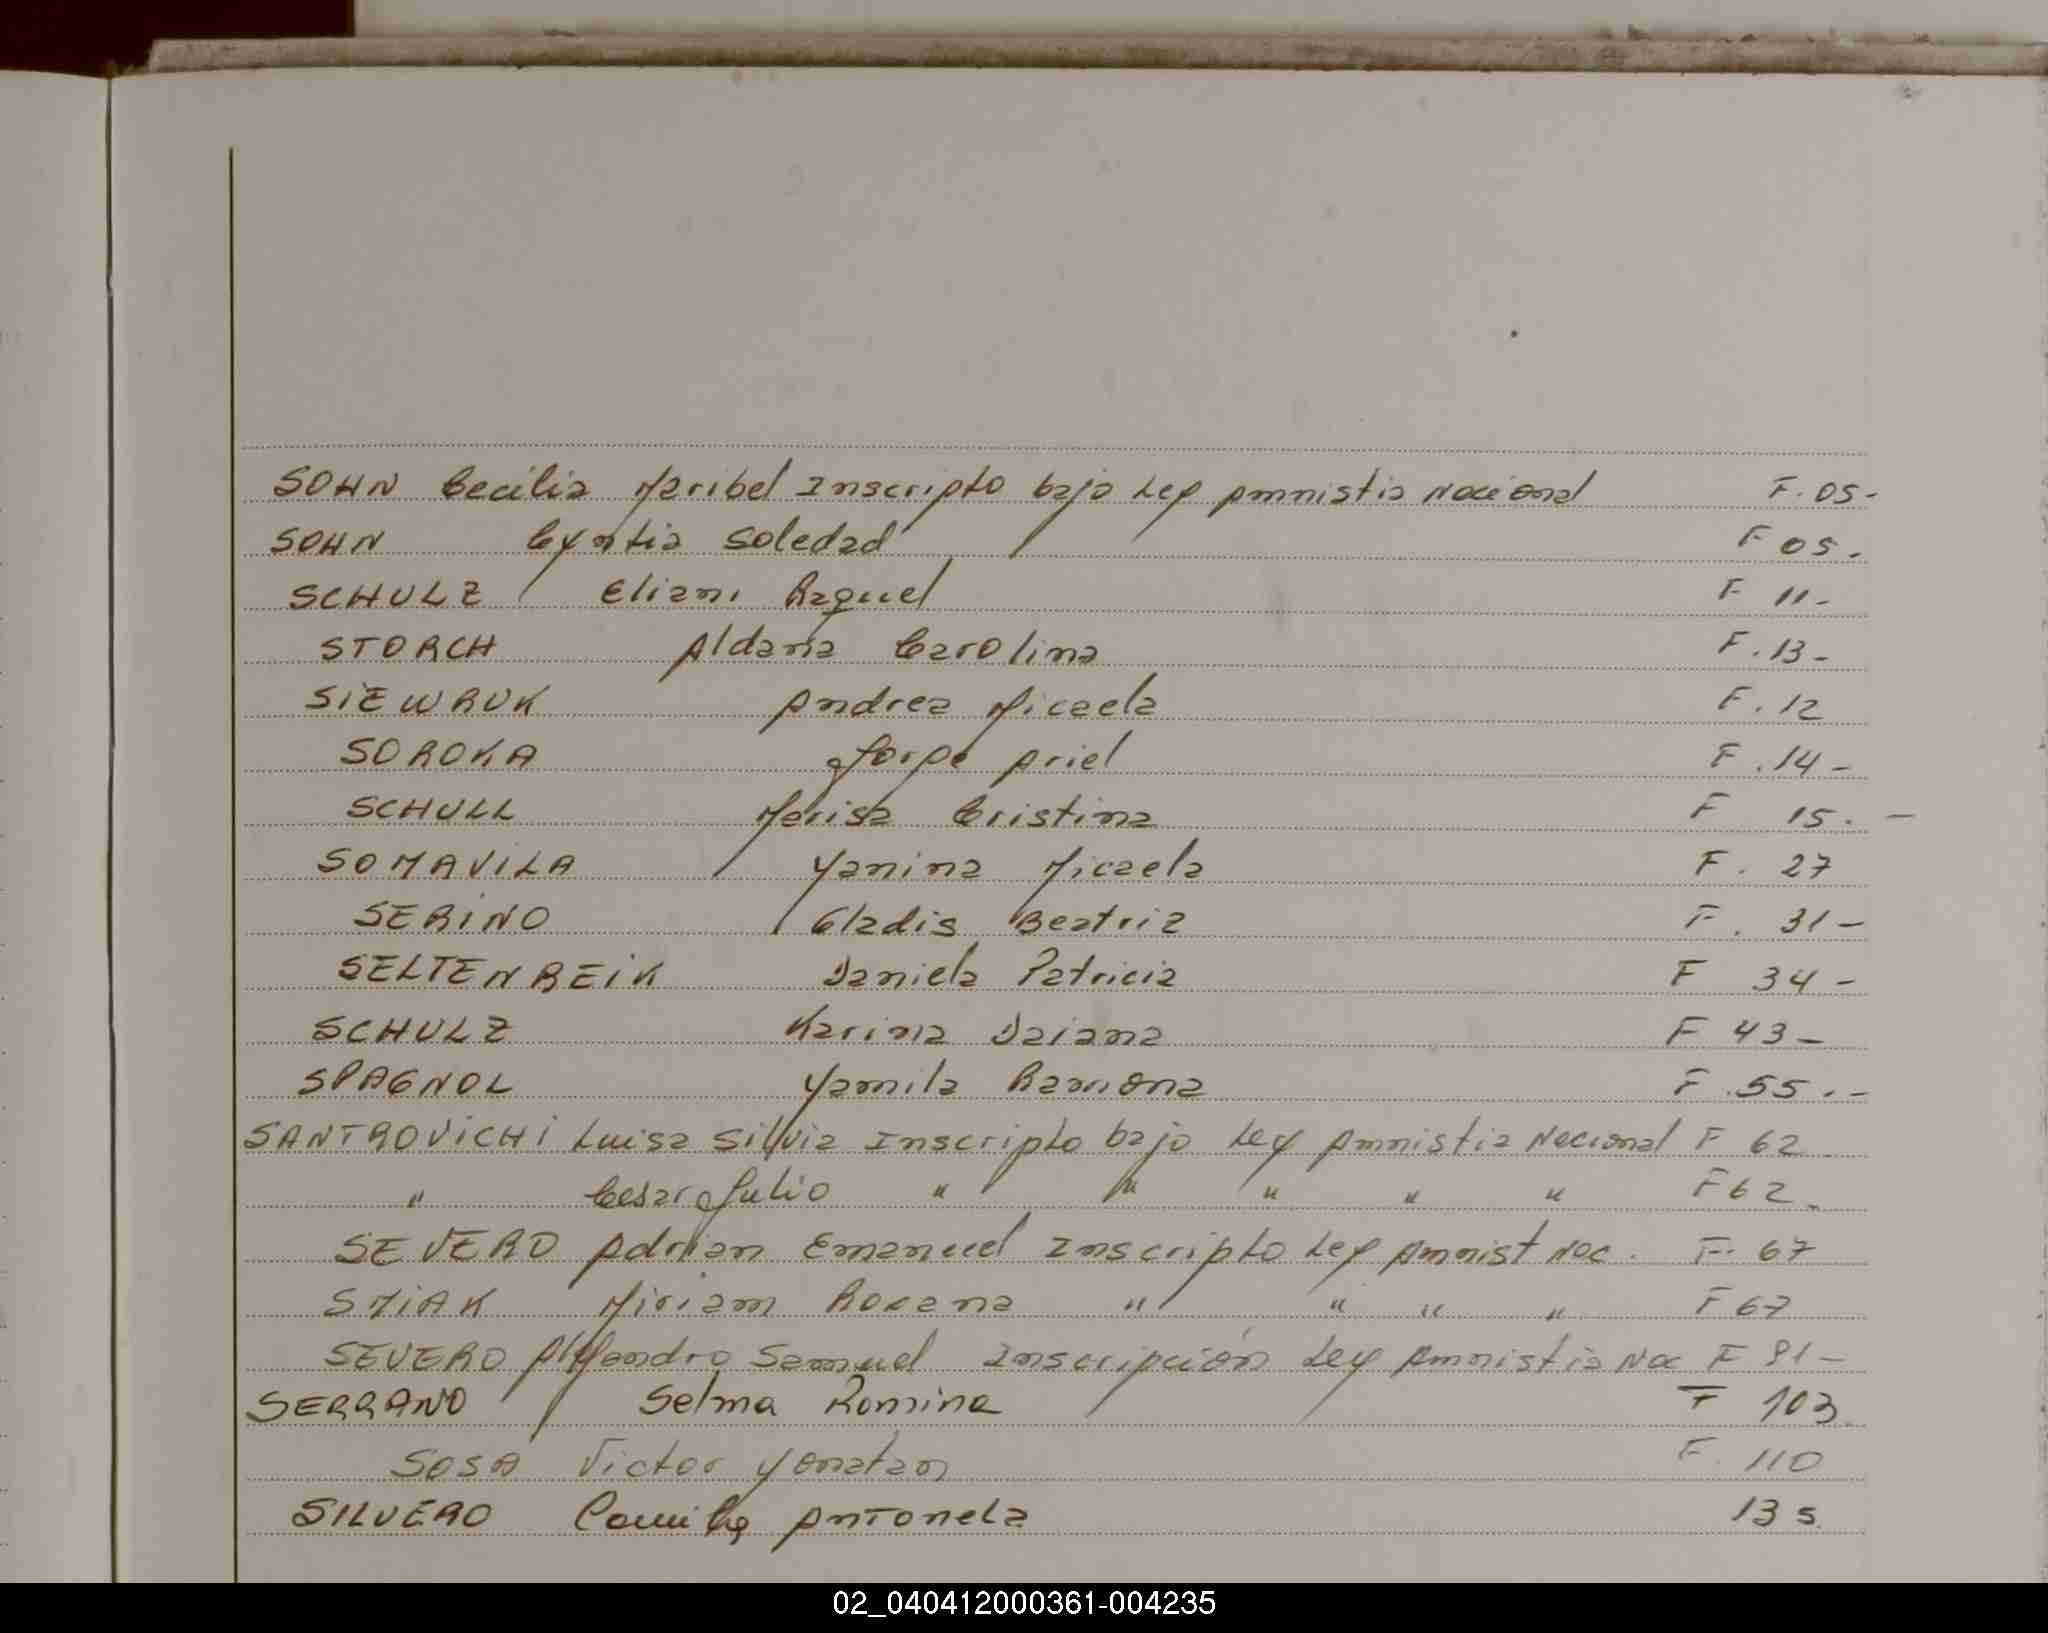 SOHN Cecilia Maribel Inscripto bajo Ley Amnistia Nacional F. 05-
SOHN Cyntia Soledad F 05.
SCHULZ Eliani Raquel F 11-
STORCH Aldana Carolina F. 13-
SIEWRUK Andrea Micaela F. 12
SOROKA Jorge Ariel F. 14-
SCHULL Marisa Cristina F 15. -
SOMAVILA Yanina Micaela F. 27
SERINO Gladis Beatriz F. 31-
SELTENREIK Daniela Patricia F 34-
SCHULZ Karina Daiana F 43-
SPAGNOL Yamila Ramona F. 55.-
SANTROVICHI Luisa Silvia Inscripto bajo Ley Amnistia Nacional F 62
" Cesar Julio " " " " " F 62.
SEVERO Adrian Emanuel Inscripto Ley Amnist Nac. F. 67
SMIAK Miriam Roxana " " " " F 67
SEVERO Alejandro Samuel Inscripción Ley Amnistia Nac F 81-
SERRANO Selma Romina F 103.
SOSA Victor Yonatan F. 110
SILVERO Camila Antonela 135.
02_040412000361-004235